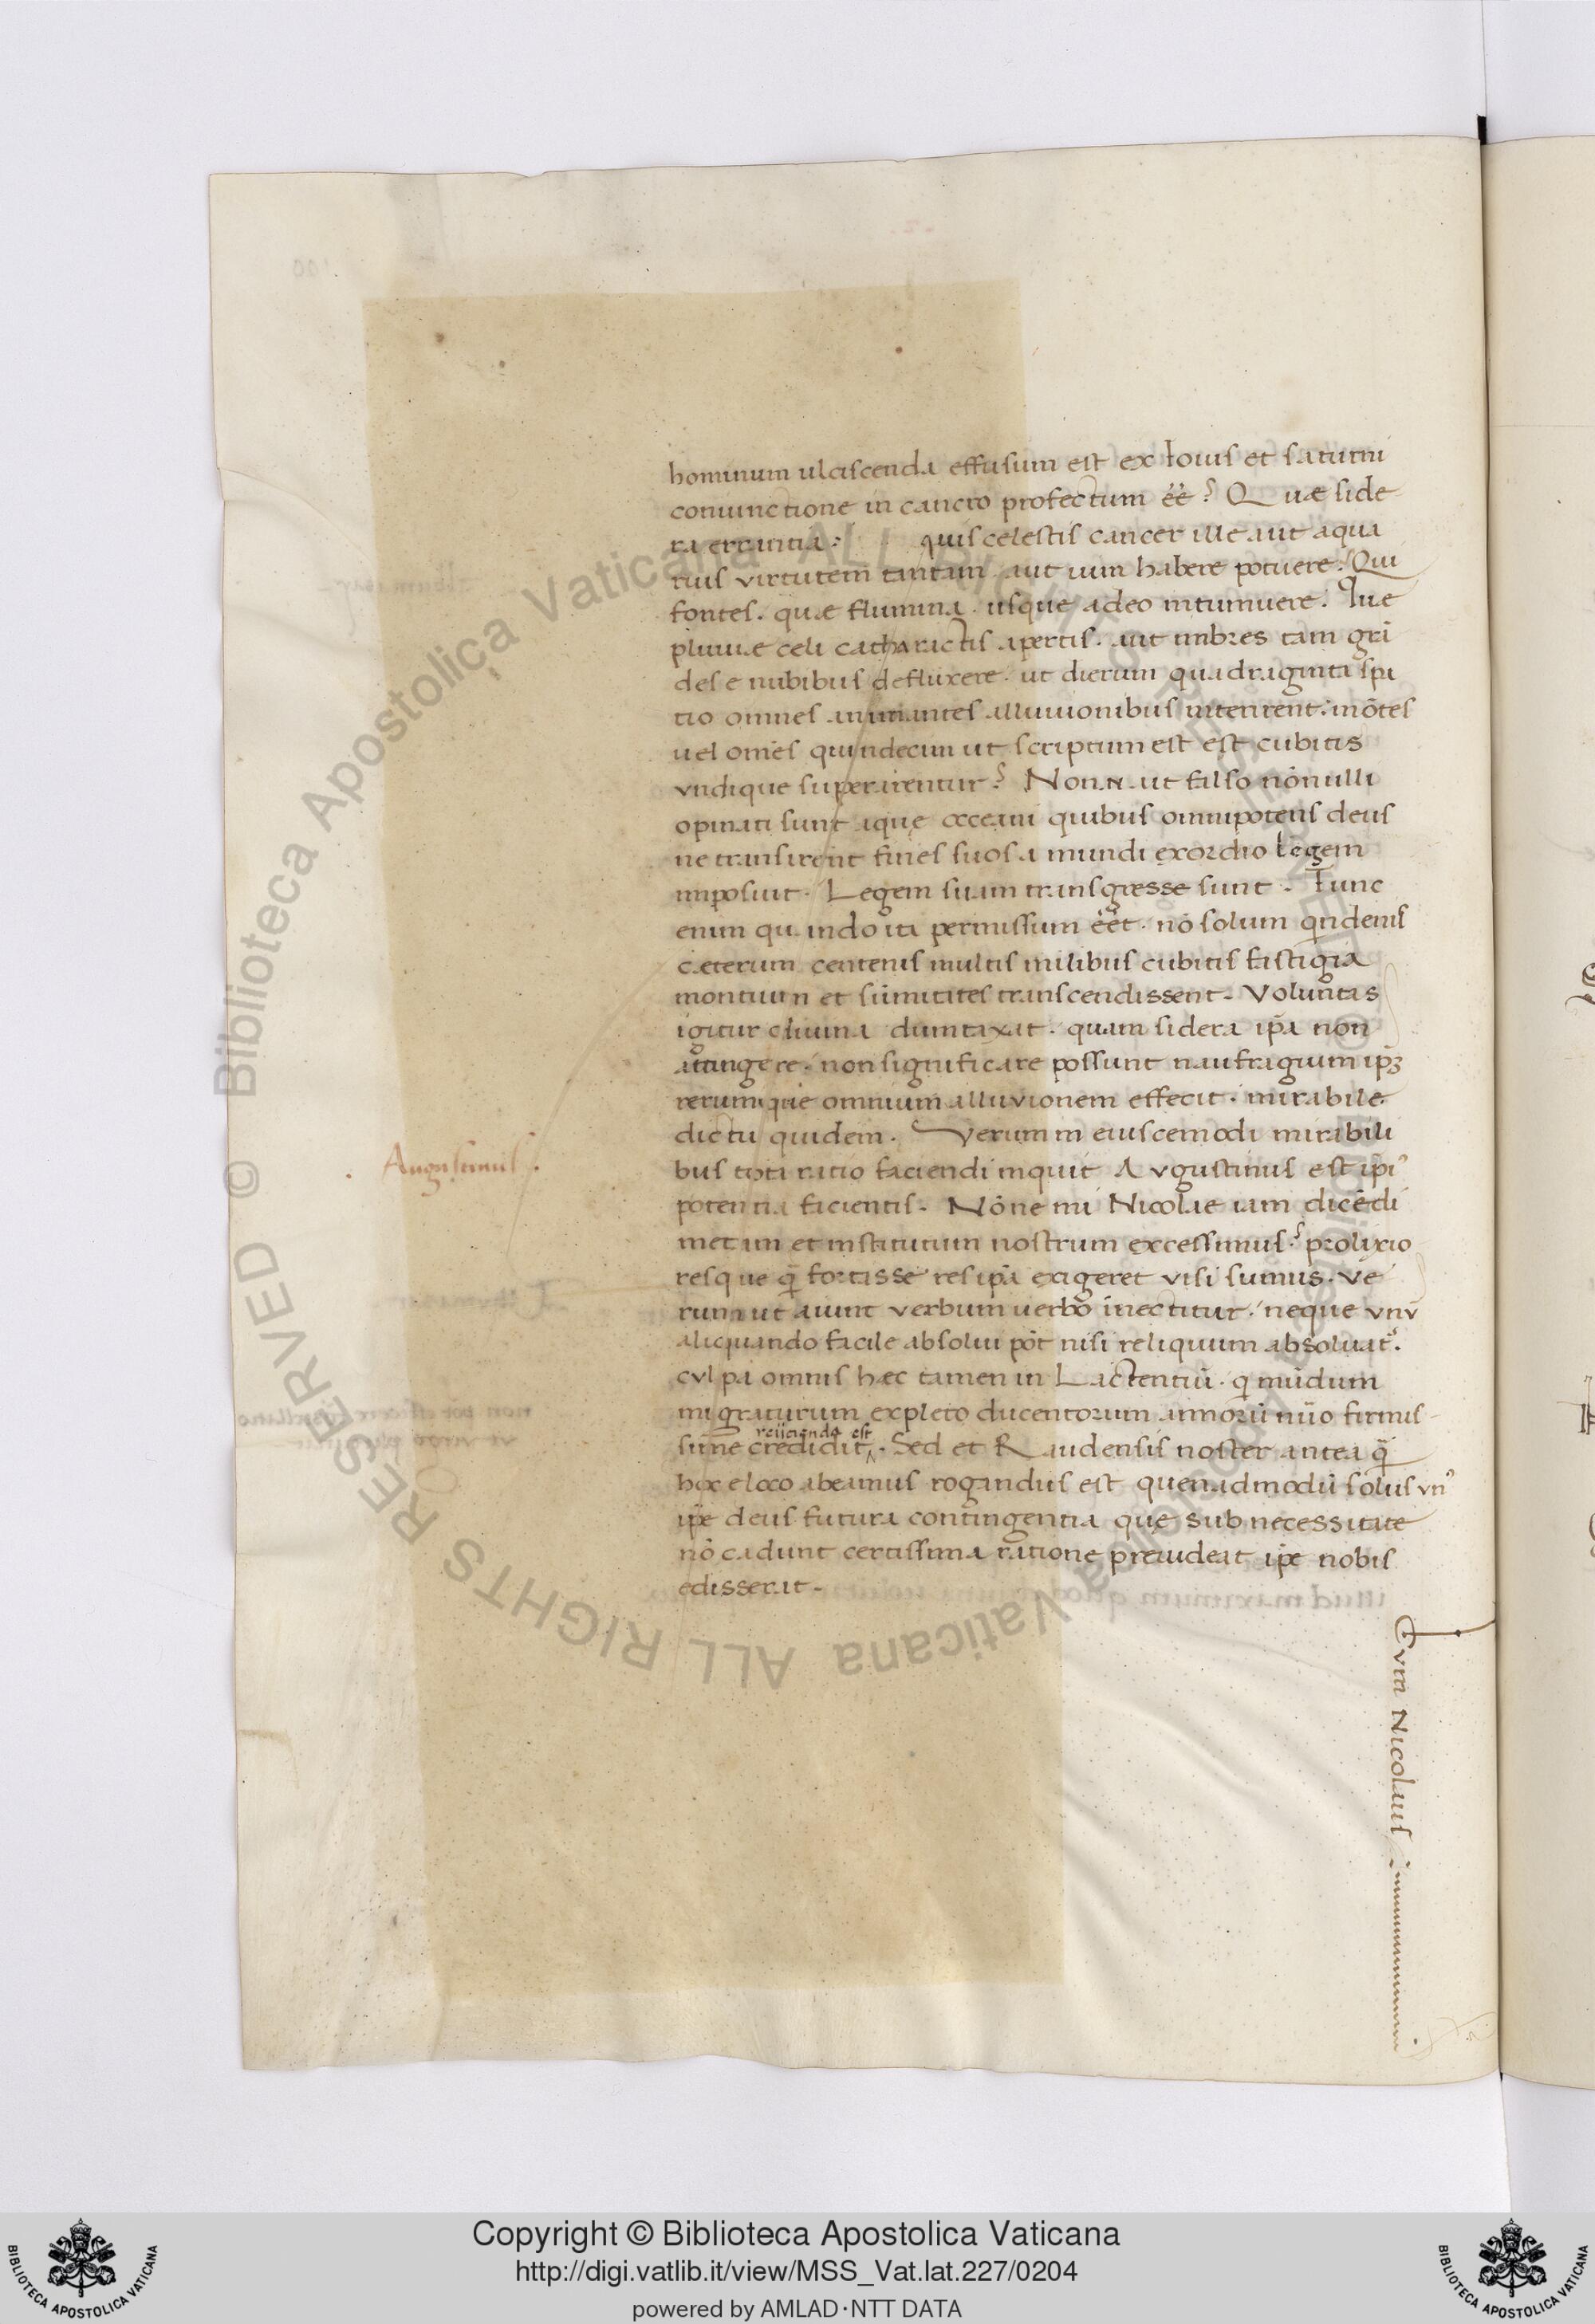 hominum ulciscenda effusum est ex Iouis et saturni
coniunctione in cancro profectum eē? Quæ side
ra errantia: quis celestis cancer ille aut aqua
rius virtutem tantam aut uim habere potuere? Qui
fontes. quæ flumina. usque adeo intumuere. Quæ
pluuiæ celi catharactis apertis. aut imbres tam grā
des e nubibus defluxere. ut dierum quadraginta spa
tio omnes animantes alluuionibus interirent: mōtes
uel omēs quindecim ut scriptum est est cubitis
vndique superarentur? Non .n. ut falso nōnulli
opinati sunt aquę occeani quibus omnipotens deus
ne transirent fines suos a mundi exordio legem
imposuit. Legem suam transgressę sunt. Tunc
enim quando ita permissum eēt. nō solum qndenis
cæterum centenis multis milibus cubitis fastigia
montium et sūmitates transcendissent. Voluntas
igitur diuina dumtaxat. quam sidera ip̄a non
attingere. non significare possunt naufragium ip̄ꝫ
rerumque omnium alluvionem effecit. mirabile
dictu quidem. Verum in eiuscemodi mirabili
bus tota ratio faciendi inquit Avgustinus est ipi᾽
potentia facientis. Nōne mi Nicolae iam dicēdi
Augustinus.
metam et institutum nostrum excessimus? prolixio
resque q̄ fortasse res ip̄a exigeret visi sumus. Ve
rum ut aiunt verbum uerbo ̄inectitur. neque vnū
aliquando facile absolui pōt nisi reliquum absoluat᾽.
cvlpa omnis hæc tamen in Lactentiū. q mūdum
migraturum expleto ducentorum annorū nūo firmis-
reijcienda est
sime credidit. Sed et Raudensis noster antea q̄
hoc e loco abeamus rogandus est quenadmodū solus vn᾽
ip̄e deus futura contingentia quę sub necessitate
nō cadunt certissima ratione preuideat ip̄e nobis
edisserat.
Cvm Nicolaus
Copyright © Biblioteca Apostolica Vaticana
http://digi.vatlib.it/view/MSS_Vat.lat.227/0204
powered by AMLAD·NTT DATA
BIBLIOTECA APOSTOLICA VATICANA
BIBLIOTECA APOSTOLICA VATICANA
© Biblioteca Apostolica Vaticana ALL RIGHTS RESERVED
© Biblioteca Apostolica Vaticana ALL RIGHTS RESERVED